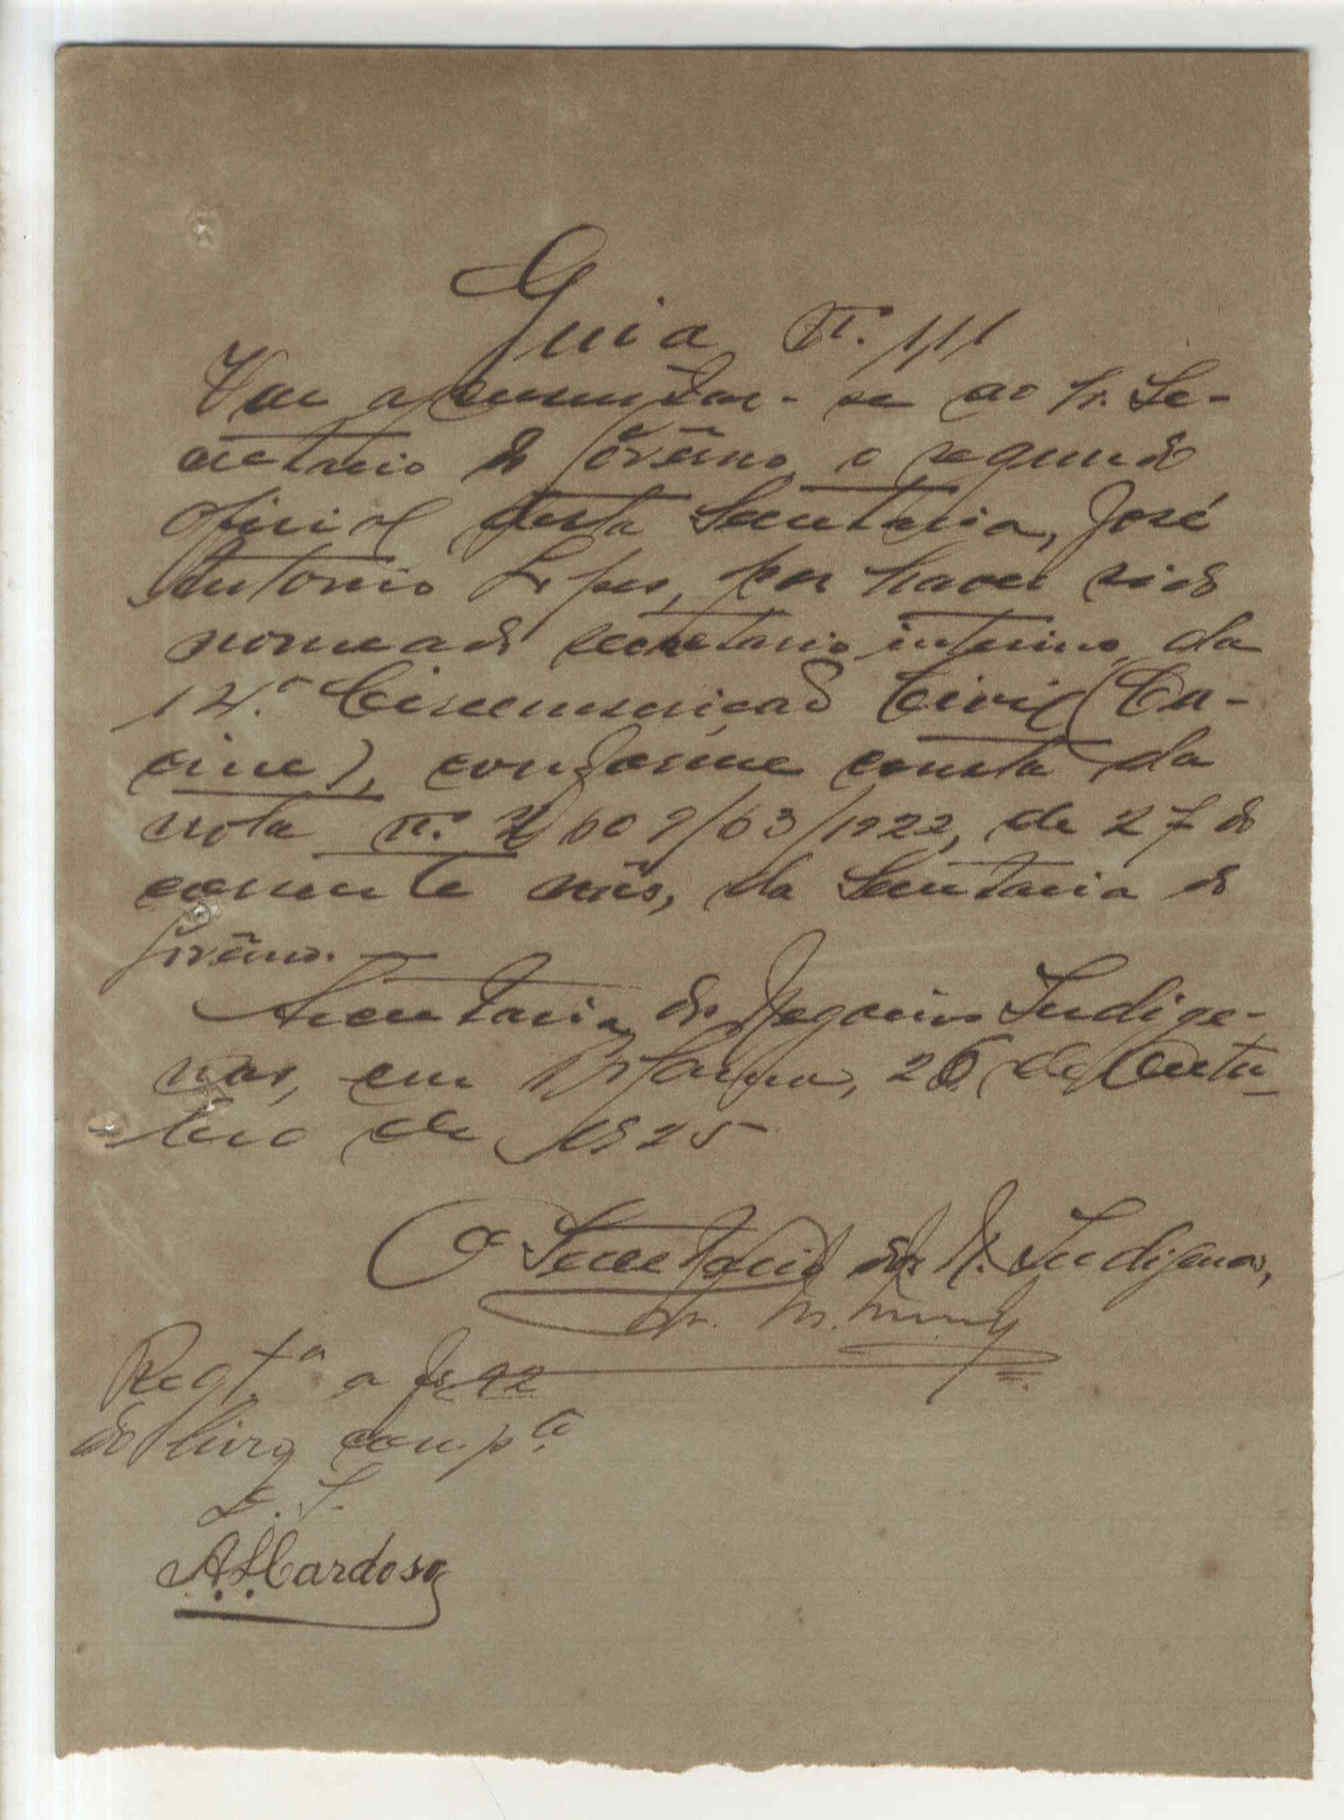 Guia Nº. 111
Vae apresentar-se ao Sr. Se-
cretario do Govêrno, o segundo
oficial desta Secretaria, José
Antonio Lopes, por haver sido
nomeado secretario interino da
14.ª Circunscrição Civil (Ca-
cine), conforme consta da
nota nº. 609/63/1922, de 27 do
corrente mês, da Secretaria do
Govêrno.
Secretaria dos Negocios Indige-
nas, em Bolama, 28 de Outu-
bro de 1925
O Secretario dos N. Indigenas,
Regt.ª a fs. 92
do livro comp.te
A. S. Cardoso